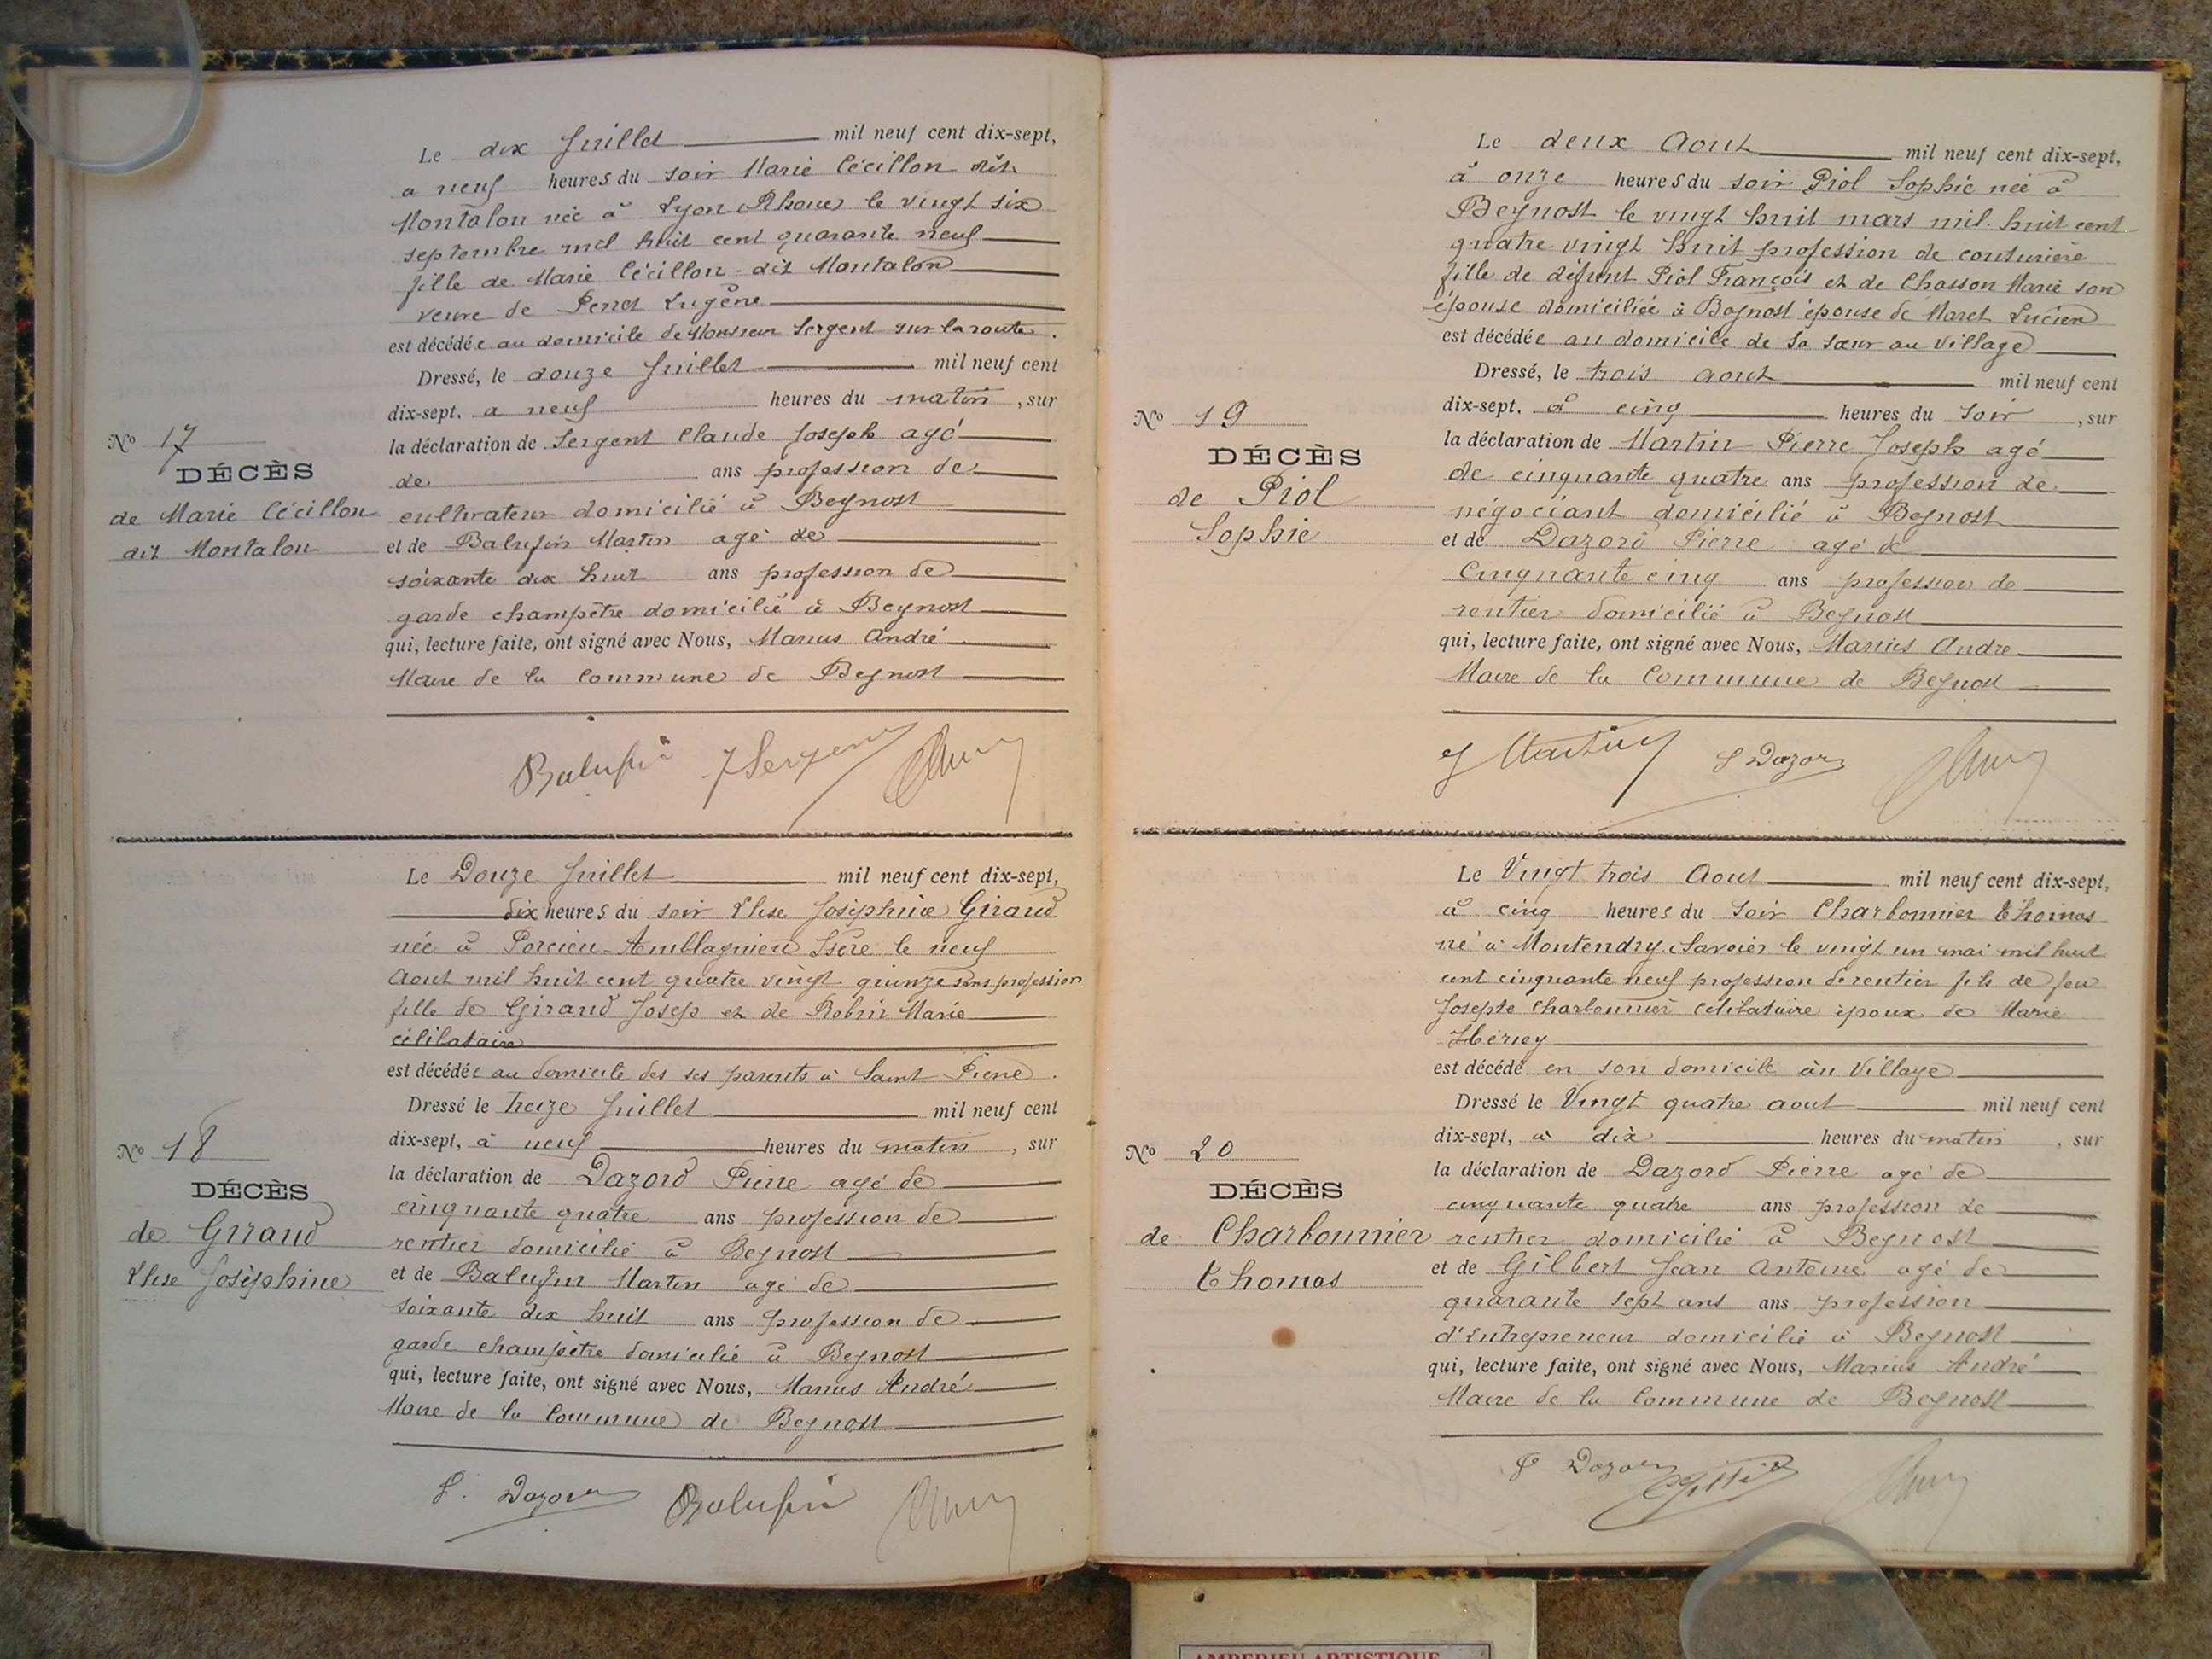 Le dix Juillet mil neuf cent dix-sept,
a neuf heures du soir Marie Cécillon dit
Montalon née à Lyon (Rhone) le vingt six
septembre mil huit cent quarante neuf
fille de Marie Cécillon dit Montalon
veuve de Perret Eugène
est décédée au domicile de Monsieur Sergent sur la route.
Dressé, le douze Juillet mil neuf cent
dix-sept, a neuf heures du matin, sur
la déclaration de Sergent Claude Joseph agé
de ans profession de
cultivateur domicilié à Beynost
et de Balufin Martin agé de
soixante dix huit ans profession de
garde champêtre domicilié à Beynost
qui, lecture faite, ont signé avec Nous, Marius André
Maire de la Commune de Beynost
No 17
DÉCÈS
de Marie Cécillon
dit Montalon
Balufin J Sergent
Le Douze Juillet mil neuf cent dix-sept,
dix heures du soir Elise Joséphine Giraud
née à Porcieu-Amblagnieu Isère le neuf
Aout mil huit cent quatre vingt quinze sans profession
fille de Giraud Josep et de Robin Marie
célibataire
est décédée au domicile des ses parents à Saint Pierre.
Dressé le treize Juillet mil neuf cent
dix-sept, à neuf heures du matin, sur
la déclaration de Dazord Pierre agé de
cinquante quatre ans profession de
rentier domicilié à Beynost
et de Balufin Martin agé de
soixante dix huit ans profession de
garde champêtre domicilié à Beynost
qui, lecture faite, ont signé avec Nous, Marius André
Maire de la Commune de Beynost
No 18
DÉCÈS
de Giraud
Elise Joséphine
P. Dazord Balufin
Le deux Aout mil neuf cent dix-sept,
à onze heures du soir Piol Sophie née à
Beynost le vingt huit mars mil huit cent
quatre vingt huit profession de couturière
fille de défunt Piol François et de Chasson Marie son
épouse domiciliée à Beynost épouse de Maret Lucien
est décédée au domicile de sa sœur au Village
Dressé, le trois aout mil neuf cent
dix-sept, à cinq heures du soir, sur
la déclaration de Martin Pierre Joseph agé
de cinquante quatre ans profession de
négociant domicilié à Beynost
et de Dazord Pierre agé de
cinquante cinq ans profession de
rentier domicilié à Beynost
qui, lecture faite, ont signé avec Nous, Marius Andre
Maire de la Commune de Beynost
No 19
DÉCÈS
de Piol
Sophie
Martin P Dazord
Le Vingt trois Aout mil neuf cent dix-sept,
à cinq heures du soir Charbonnier Thomas
né à Montendry (Savoie) le vingt un mai mil huit
cent cinquante neuf profession de rentier fils de feu
Josepte Charbonnier célibataire époux de Marie
est décédé en son domicile au Village
Dressé le Vingt quatre aout mil neuf cent
dix-sept, à dix heures du matin, sur
la déclaration de Dazord Pierre agé de
cinquante quatre ans profession de
rentier domicilié à Beynost
et de Gilbert Jean Antoine agé de
quarante sept ans ans profession
d'entrepreneur domicilié à Beynost
qui, lecture faite, ont signé avec Nous, Marius André
Maire de la Commune de Beynost
No 20
DÉCÈS
de Charbonnier
Thomas
P Dazord
AMBERIEU ARTISTIQUE